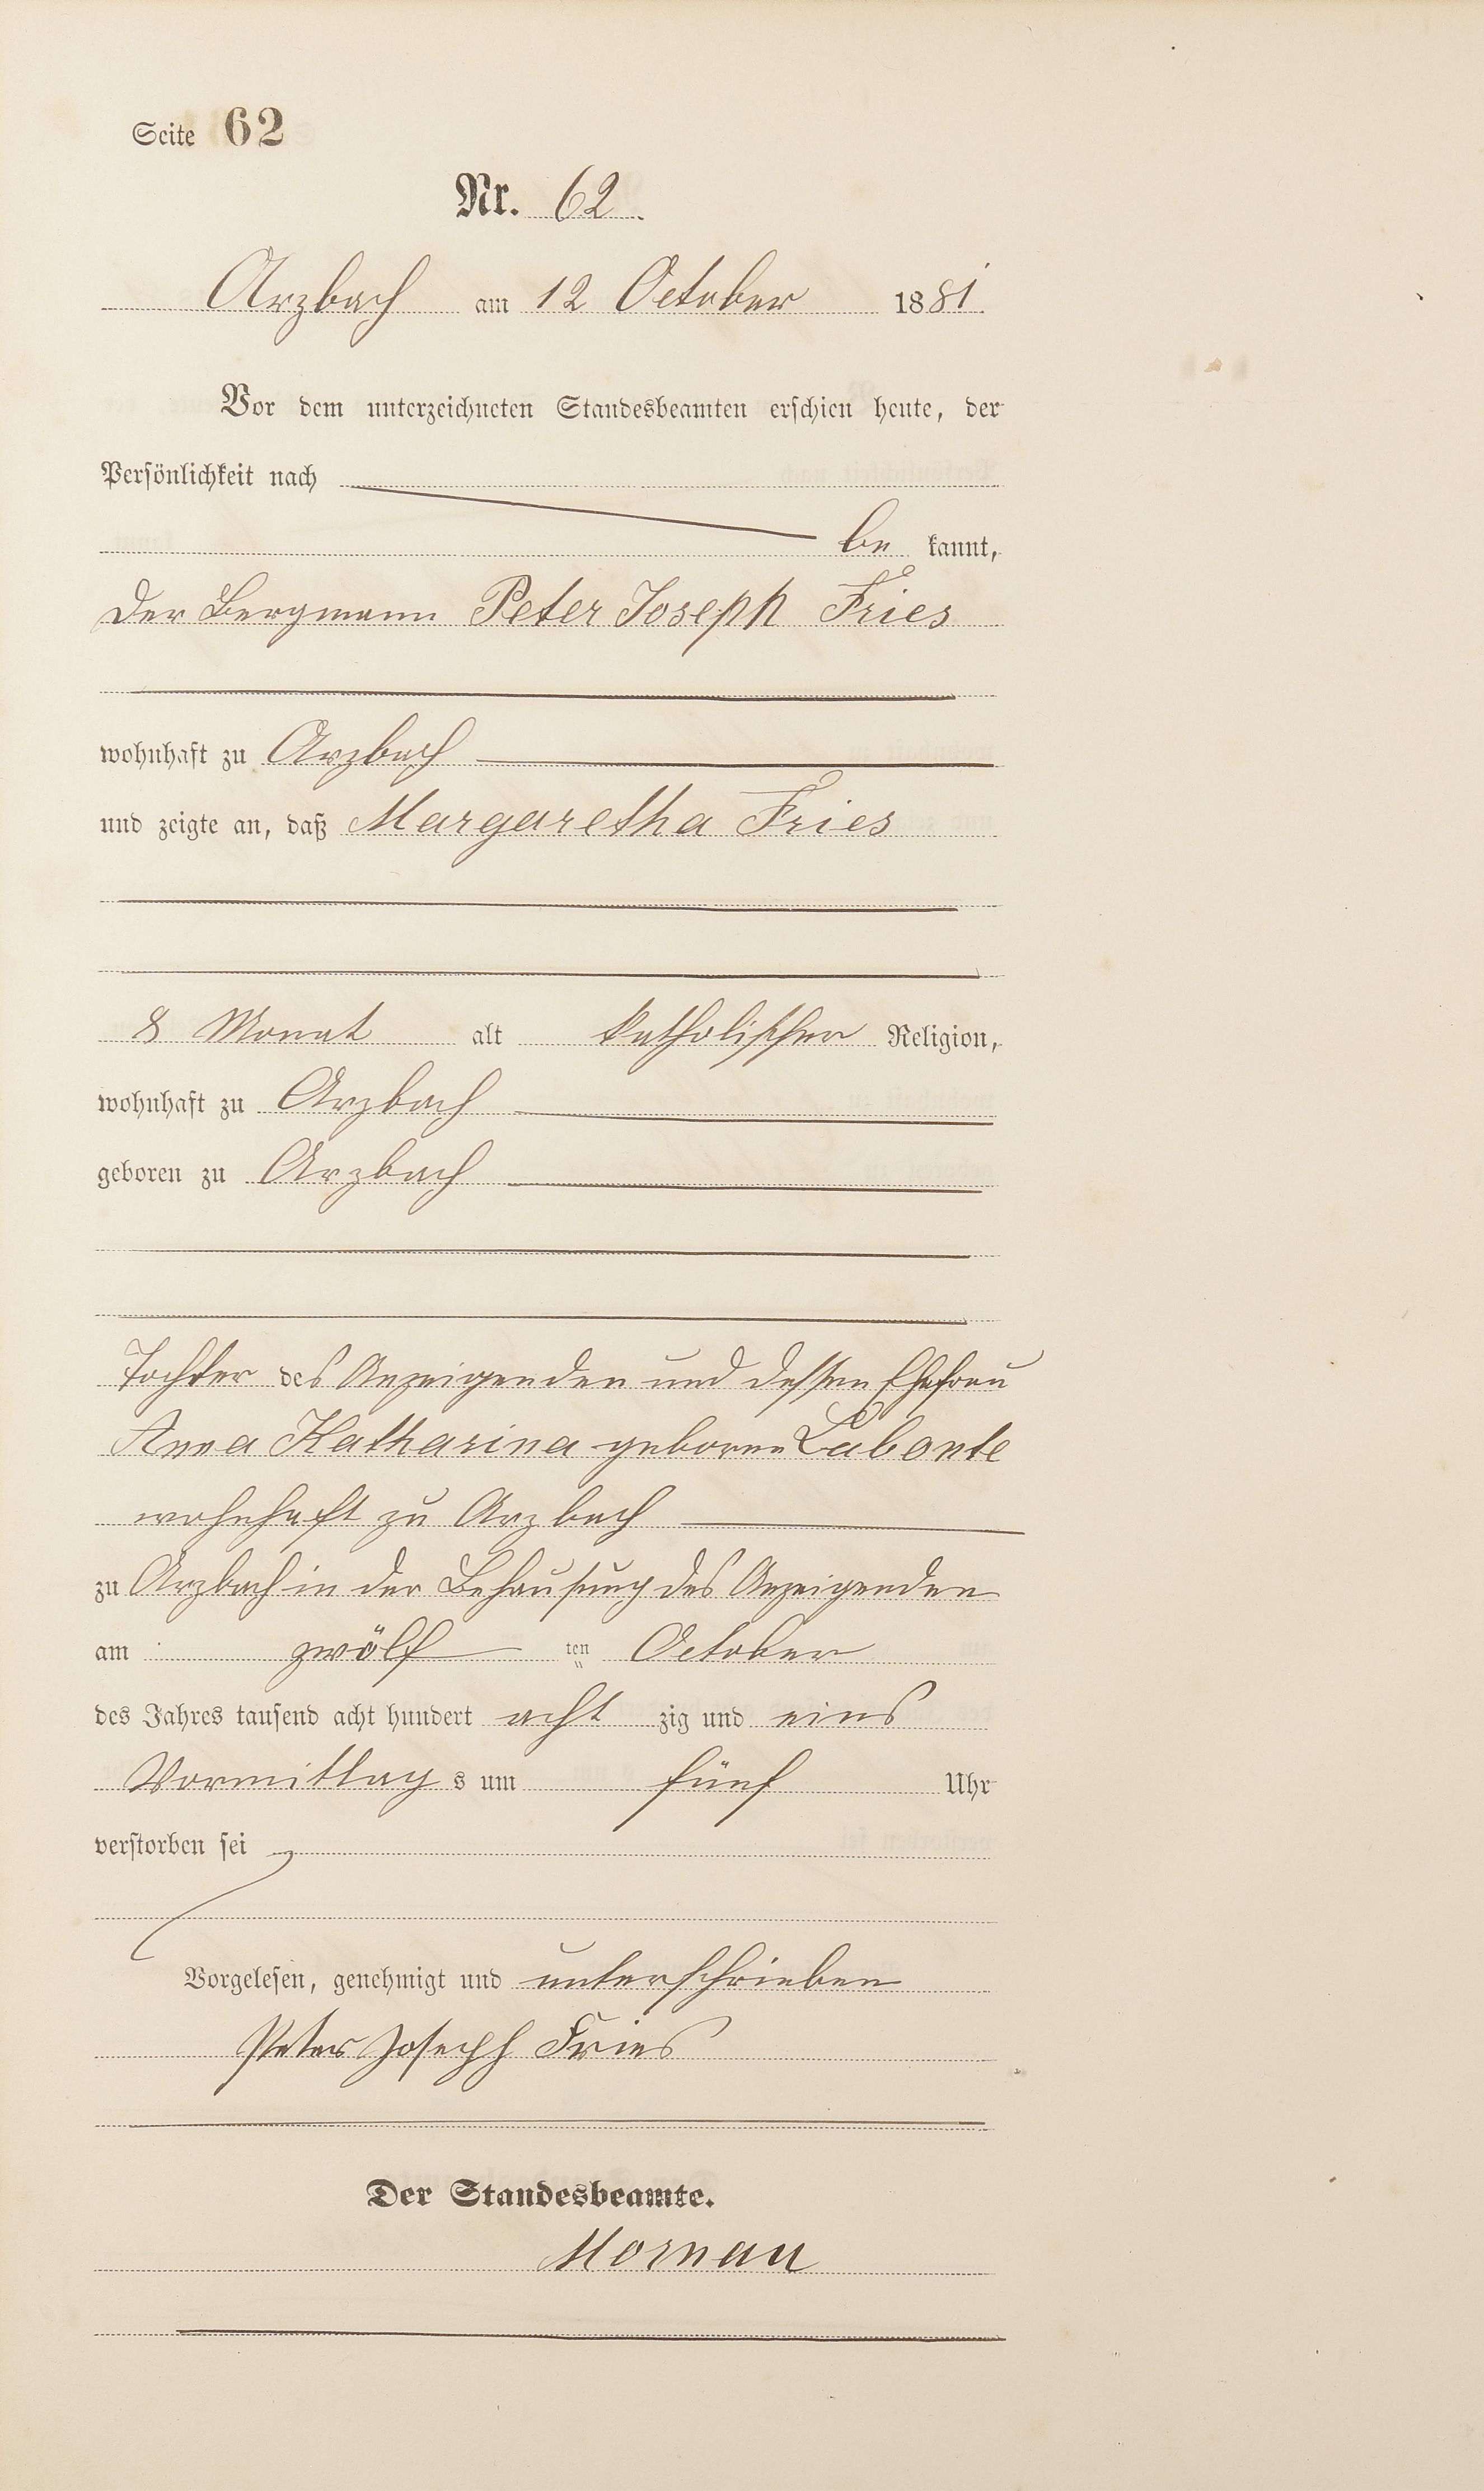 Seite 62
Nr. 62.
Arzbach am 12 October 1881.
Vor dem unterzeichneten Standesbeamten erschien heute, der
Persönlichkeit nach
be kannt,
der Bergmann Peter Joseph Fries
wohnhaft zu Arzbach
und zeigte an, daß Margaretha Fries
8 Monat alt katholischer Religion,
wohnhaft zu Arzbach
geboren zu Arzbach
Tochter des Anzeigenden und dessen Ehefrau
Anna Katharina geborene Labonte
wohnhaft zu Arzbach
zu Arzbach in der Behausung des Anzeigenden
am zwölf ten October
des Jahres tausend acht hundert acht zig und eins
Vormittag s um fünf Uhr
verstorben sei
Vorgelesen, genehmigt und unterschrieben
Peter Joseph Fries
Der Standesbeamte.
Mornau